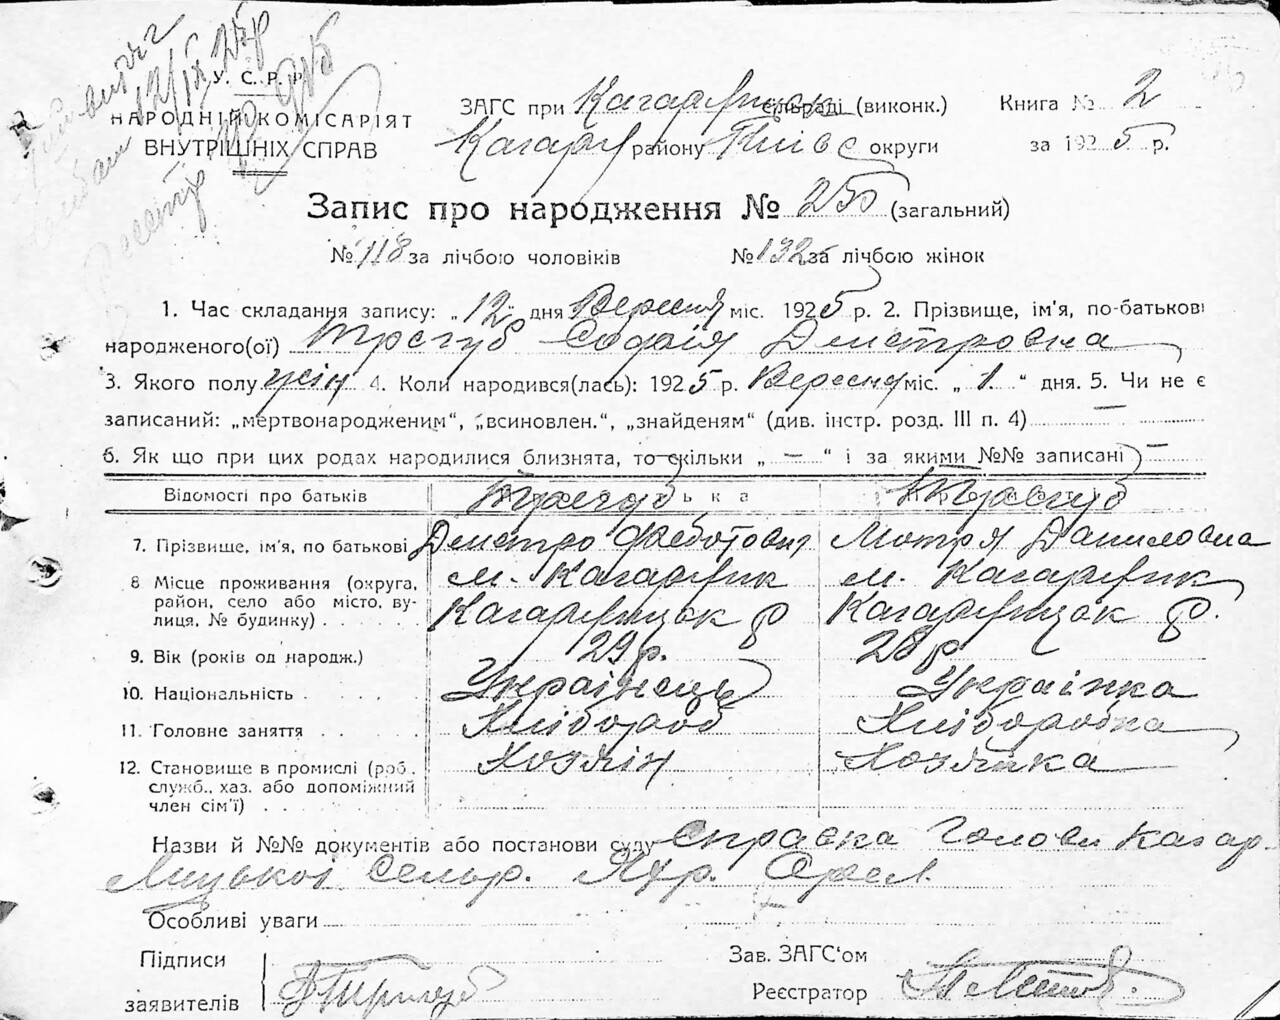 У. С. Р. Р.
НАРОДНІЙ КОМІСАРІЯТ
ВНУТРІШНІХ СПРАВ
ЗАГС при Кагарлицьк сільраді (виконк.) Книга № 2
Кагарл району Київс округи за 1925 р.
Запис про народження № 250 (загальний)
№ 118 за лічбою чоловіків № 132 за лічбою жінок
1. Час складання запису: „12“ дня Вересня міс. 1925 р. 2. Прізвище, ім'я, по-батькові
народженого(ої) Трегуб Софія Дмитровна
3. Якого полу жін 4. Коли народився(лась): 1925 р. Вересня міс. „1“ дня. 5. Чи не є
записаний: „мертвонародженим“, „всиновлен.“, „знайденям“ (див. інстр. розд. III п. 4) —
6. Як що при цих родах народилися близнята, то скільки „—“ і за якими №№ записані —
Відомості про батьків Трегуб Трегуб
7. Прізвище, ім'я, по батькові Дмитро Федотович Мотря Даниловна
8 Місце проживання (округа, м. Кагарлик м. Кагарлик
район, село або місто, ву-
лиця, № будинку) . Кагарлицьк р Кагарлицьк р.
9. Вік (років од народж.) 29 р. 28 р
10. Національність . Українець Українка
11. Головне заняття . . Хлібороб Хліборобка
12. Становище в промислі (роб., Хозяїн Хозяйка
служб., хаз. або допоміжний
член сім'ї) . .
Назви й №№ документів або постанови суду Справка Голови Кагар
лицької Сельр.
Особливі уваги
Підписи
заявителів
Зав. ЗАГС'ом
Реєстратор